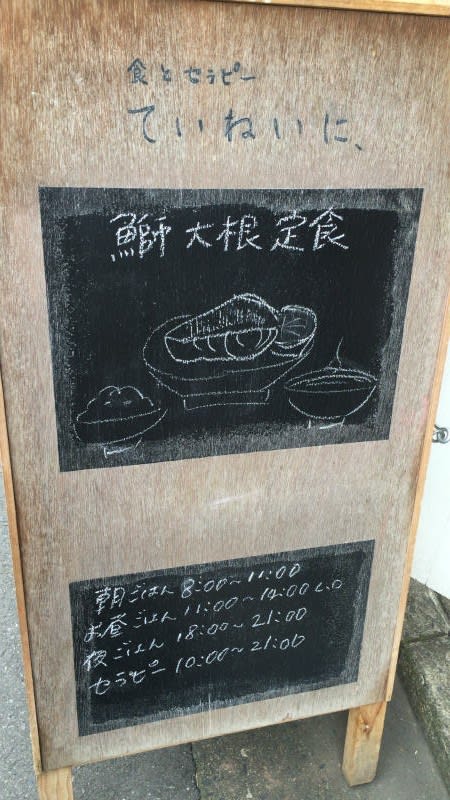 食とセラピー
ていねいに、
鰤大根定食
朝ごはん 8:00～11:00
お昼ごはん 11:00～14:00 L.O
夜ごはん 18:00～21:00
セラピー 10:00～21:00